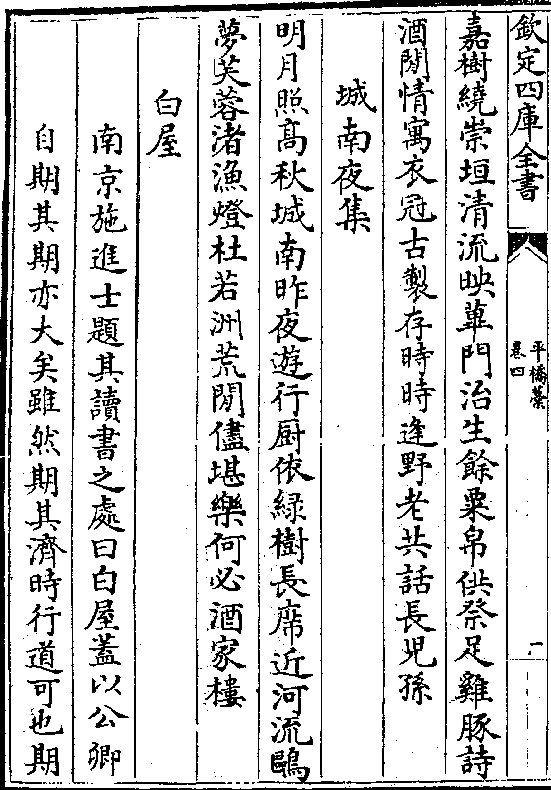 欽定四庫全書
平橋藁
卷四
一
嘉樹繞崇垣清流映蓽門治生餘粟帛供祭足雞豚詩
酒閒情寓衣冠古製存時時逢野老共話長兒孫
城南夜集
明月照高秋城南昨夜遊行厨依綠樹長席近河流鷗
夢芙蓉渚漁燈杜若洲荒閒儘堪樂何必酒家樓
白屋
南京施進士題其讀書之處曰白屋蓋以公卿
自期其期亦大矣雖然期其濟時行道可也期